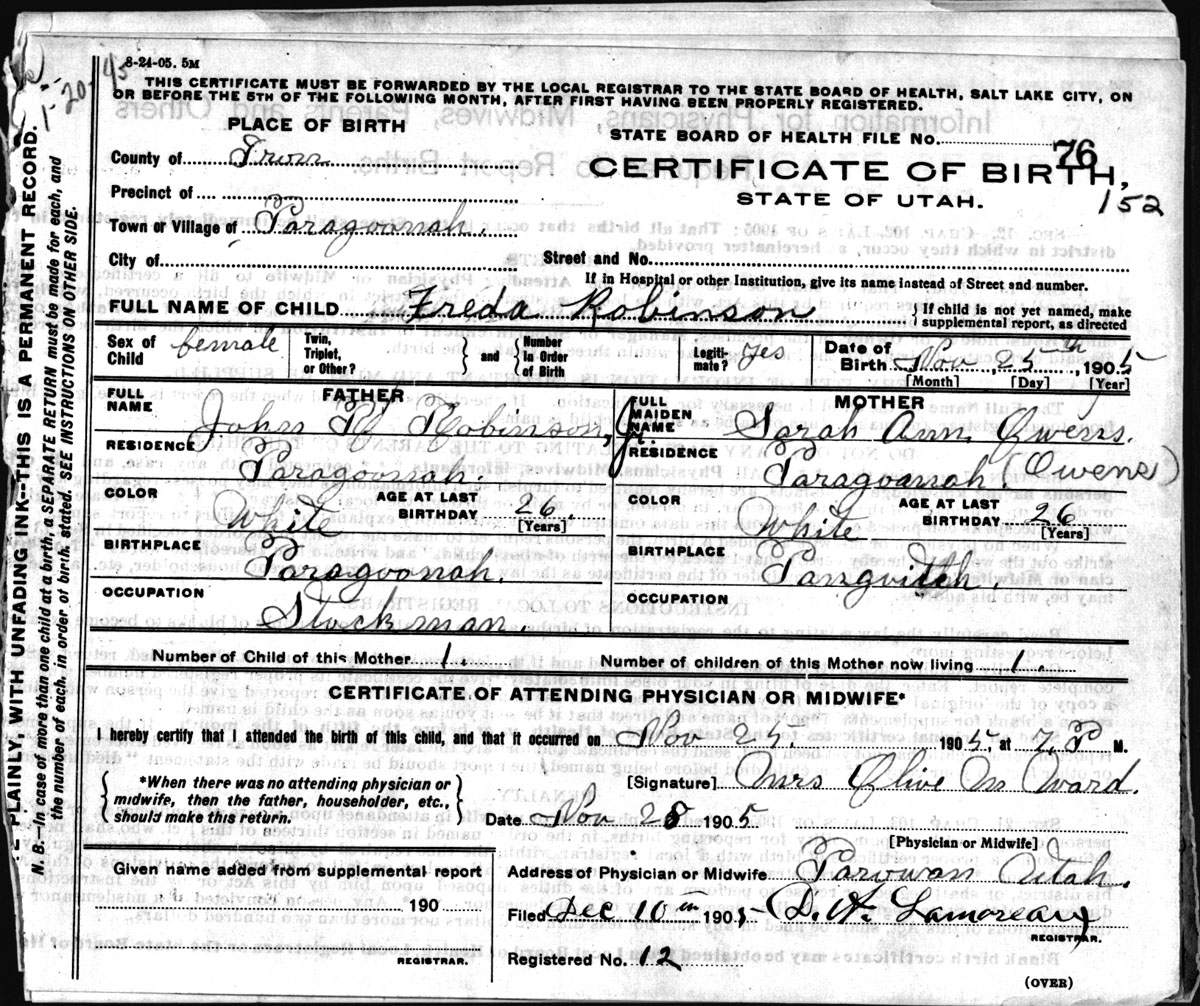 8-24-05. 5M
THIS CERTIFICATE MUST BE FORWARDED BY THE LOCAL REGISTRAR TO THE STATE BOARD OF HEALTH, SALT LAKE CITY, ON
OR BEFORE THE 5TH OF THE FOLLOWING MONTH, AFTER FIRST HAVING BEEN PROPERLY REGISTERED.
PLACE OF BIRTH
STATE BOARD OF HEALTH FILE No. 76
County of Iron
CERTIFICATE OF BIRTH,
152
Precinct of
STATE OF UTAH.
Town or Village of Paragoonah.
City of Street and No.
If in Hospital or other Institution, give its name instead of Street and number.
FULL NAME OF CHILD Freda Robinson } If child is not yet named, make supplemental report, as directed
Sex of Child female Twin, Triplet, or Other? } and { Number In Order of Birth Legiti-mate? Yes Date of Birth Nov 25th, 1905
[Month] [Day] [Year]
FATHER MOTHER
FULL NAME John H Robinson, Jr. FULL MAIDEN NAME Sarah Ann Owens.
(Owens)
RESIDENCE Paragoonah. RESIDENCE Paragoonah.
COLOR White AGE AT LAST BIRTHDAY 26. [Years] COLOR White AGE AT LAST BIRTHDAY 26 [Years]
BIRTHPLACE Paragoonah. BIRTHPLACE Panguitch.
OCCUPATION Stockman. OCCUPATION
Number of Child of this Mother 1. Number of children of this Mother now living 1.
CERTIFICATE OF ATTENDING PHYSICIAN OR MIDWIFE*
I hereby certify that I attended the birth of this child, and that it occurred on Nov 25. 1905, at 7. P M.
{ *When there was no attending physician or
midwife, then the father, householder, etc.,
should make this return. }
[Signature] Mrs Olive M Ward.
Date Nov 28 1905
[Physician or Midwife]
Given name added from supplemental report
190
REGISTRAR.
Address of Physician or Midwife Parowan Utah.
Filed Dec 10th 1905 D. A. Lamoreaux
REGISTRAR.
Registered No. 12
(OVER)
PLAINLY, WITH UNFADING INK—THIS IS A PERMANENT RECORD.
N. B.—In case of more than one child at a birth, a SEPARATE RETURN must be made for each, and
the number of each, in order of birth, stated. SEE INSTRUCTIONS ON OTHER SIDE.